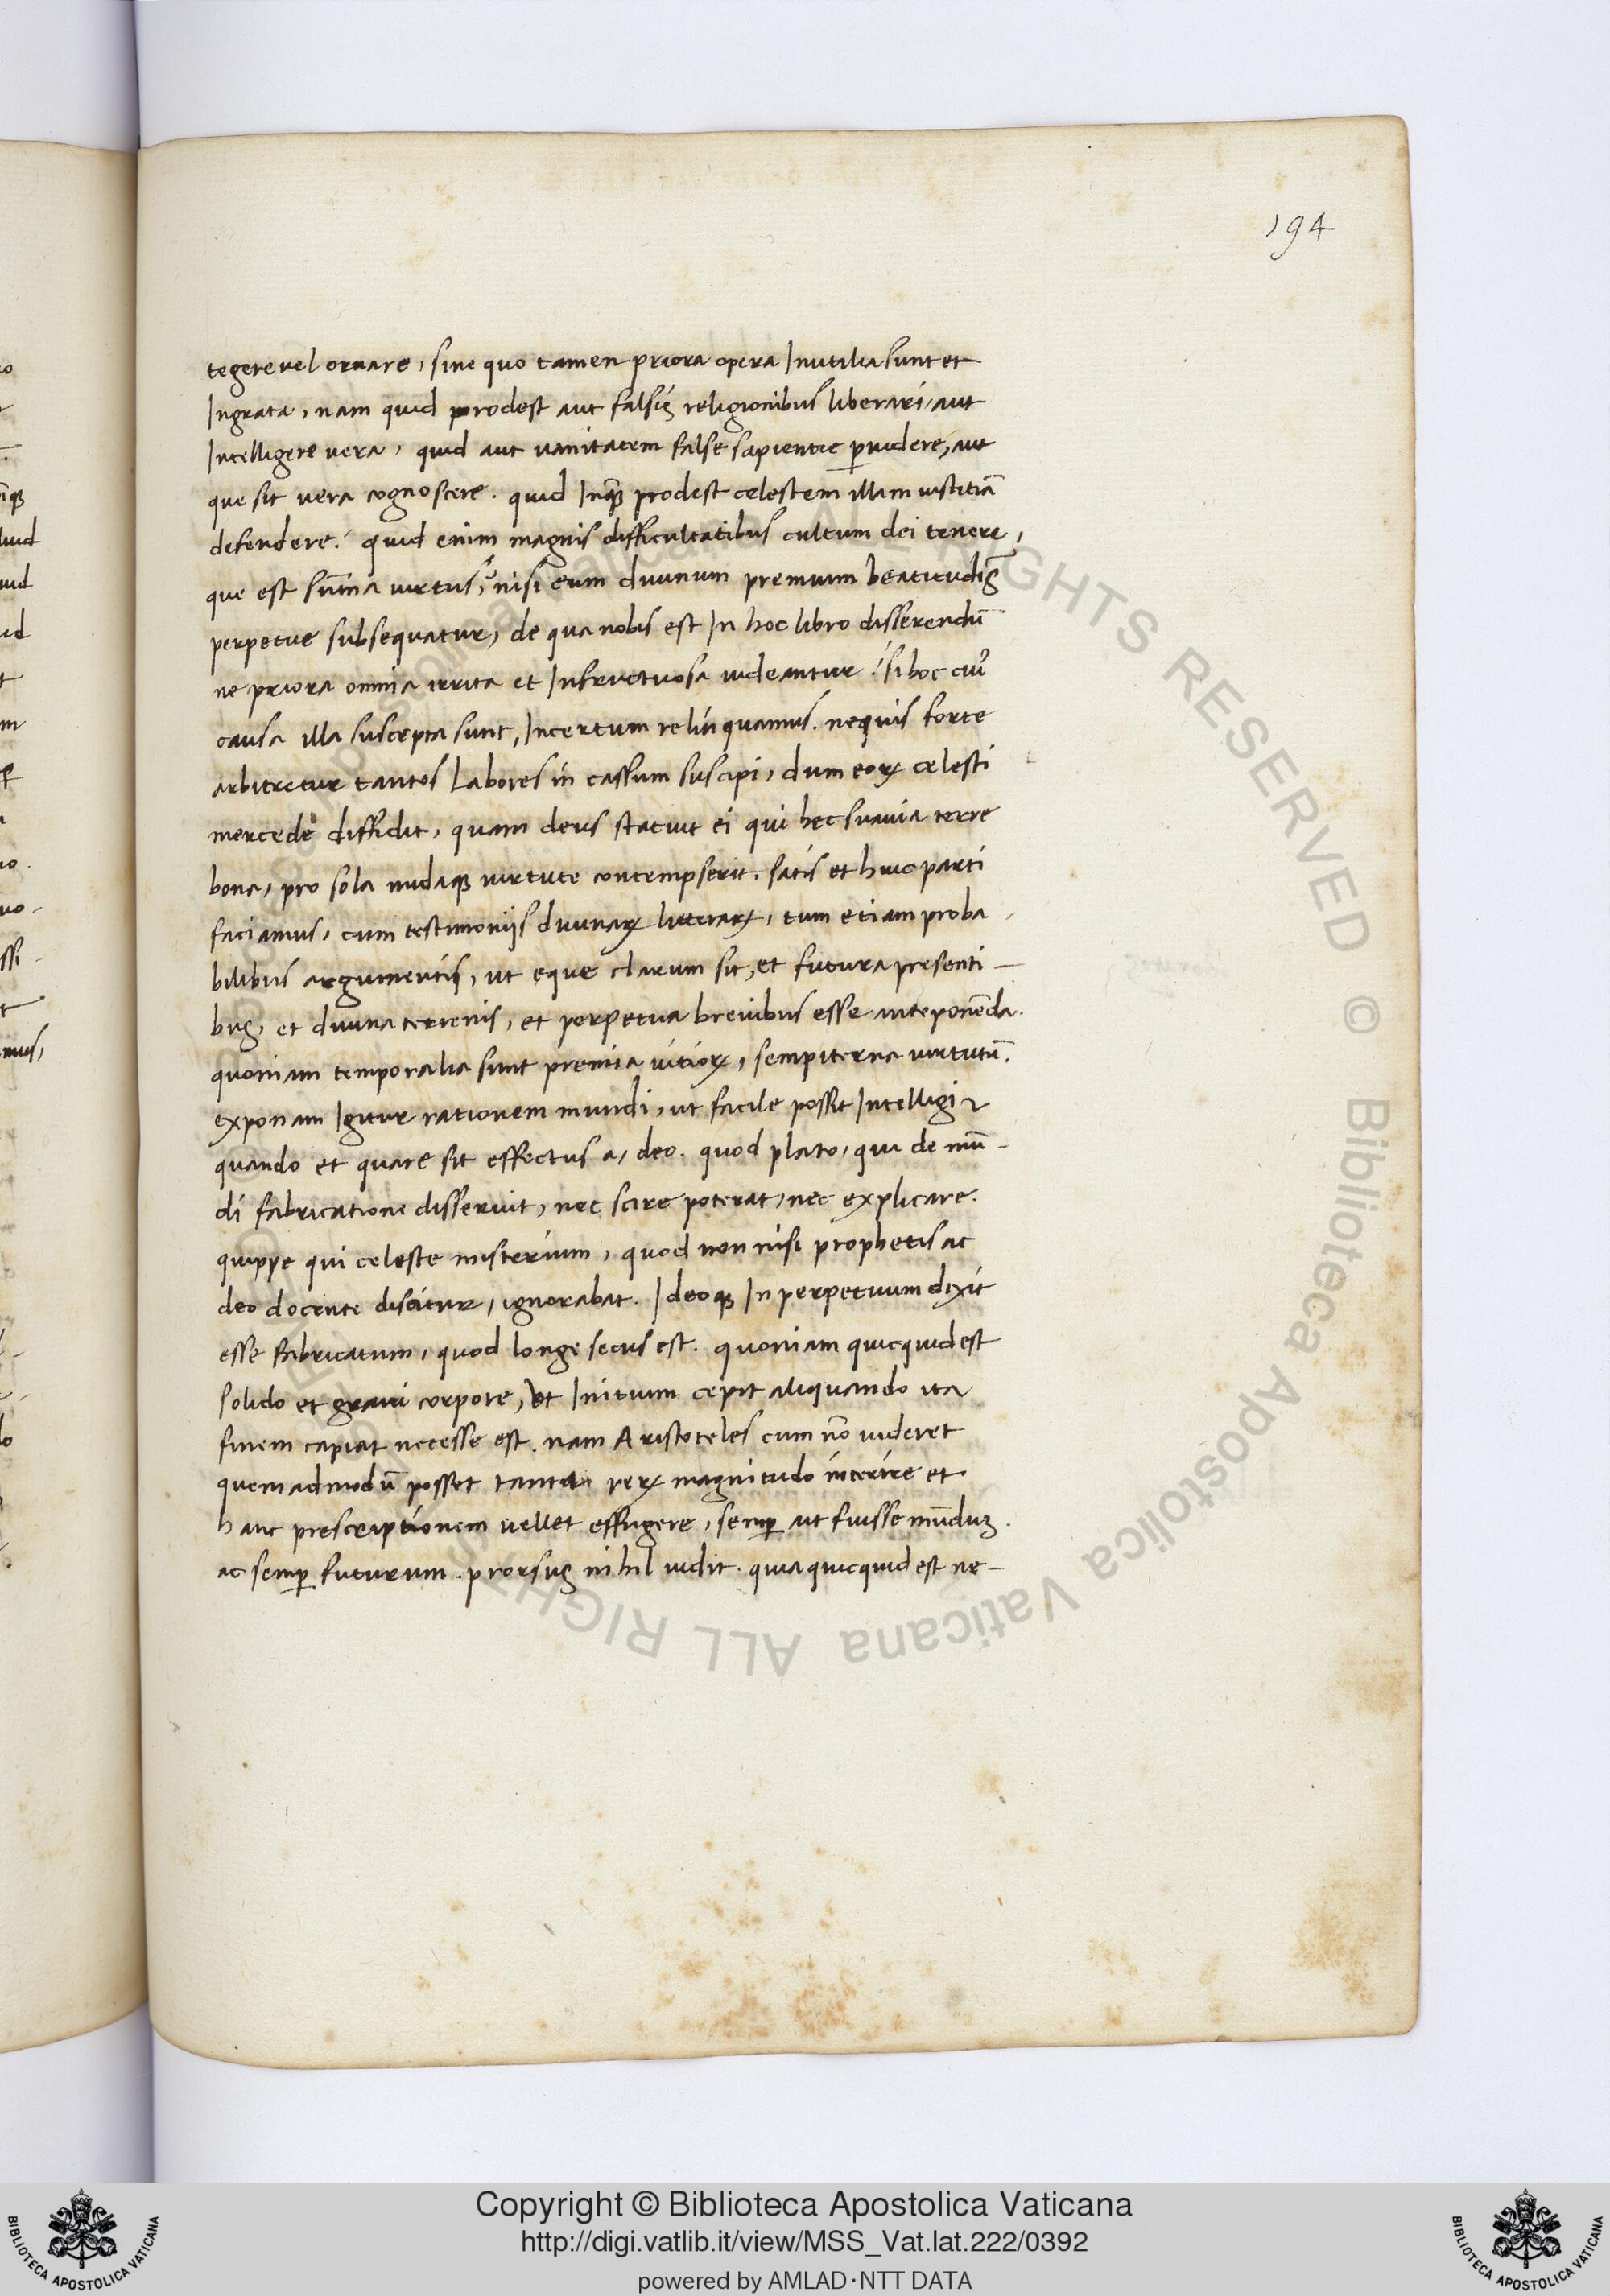 194
tegere vel ornare, sine quo tamen priora opera Inutilia sunt et
Ingrata, nam quid prodest aut falsis religionibus liberari, aut
Intelligere vera, quid aut vanitatem false sapientie ꝑuidere, aut
que sit vera cognoscere. quid Inqȝ prodest celestem illam iustitiã
defendere. quid enim magnis difficultatibus cultum dei tenere,
que est sum̃a uirtus, nisi eum diuinum premium beatitudĩs
perpetue subsequatur, de qua nobis est In hoc libro disserendũ
ne priora omnia irrita et Infructuosa uideantur. si hoc cuiꝰ
causa illa suscepta sunt, Incertum relinquamus. nequis forte
arbitretur tantos Labores in cassum suscipi, dum eoꝝ celesti
mercede diffidit, quam deus statuit ei qui hec suauia terre
bona, pro sola nudaqȝ uirtute contempserit. satis et huic parti
faciamus, cum testimonijs diuinaꝝ litteraꝝ, tum etiam proba
bilibus argumentis, ut eque clarum sit, et futura presenti-
bus, et diuina terrenis, et perpetua breuibus esse anteponẽda.
quoniam temporalia sunt premia uitioꝝ, sempiterna uirtutũ.
exponam Igitur rationem mundi, ut facile possit Intelligi
quando et quare sit effectus a, deo. quod plato, qui de mũ-
di fabricatione disseruit, nec scire poterat, nec explicare.
quippe qui celeste misterium, quod non nisi prophetis ac
deo docente discitur, ignorabat. Ideoqȝ In perpetuum dixit
esse fabricatum, quod longe secus est. quoniam quicquid est
solido et graui corpore, Vt Initium cepit aliquando ita
finem capiat necesse est. nam Aristoteles cum nõ uideret
quemadmodũ posset tanta reꝝ magnitudo interire et
hanc prescriptionem uellet effugere, semꝑ ait fuisse mũduȝ.
ac semꝑ futurum. prorsus nihil uidit. quia quicquid est ne-
© Biblioteca Apostolica Vaticana ALL RIGHTS RESERVED
Copyright © Biblioteca Apostolica Vaticana
http://digi.vatlib.it/view/MSS_Vat.lat.222/0392
powered by AMLAD·NTT DATA
BIBLIOTECA APOSTOLICA VATICANA
BIBLIOTECA APOSTOLICA VATICANA